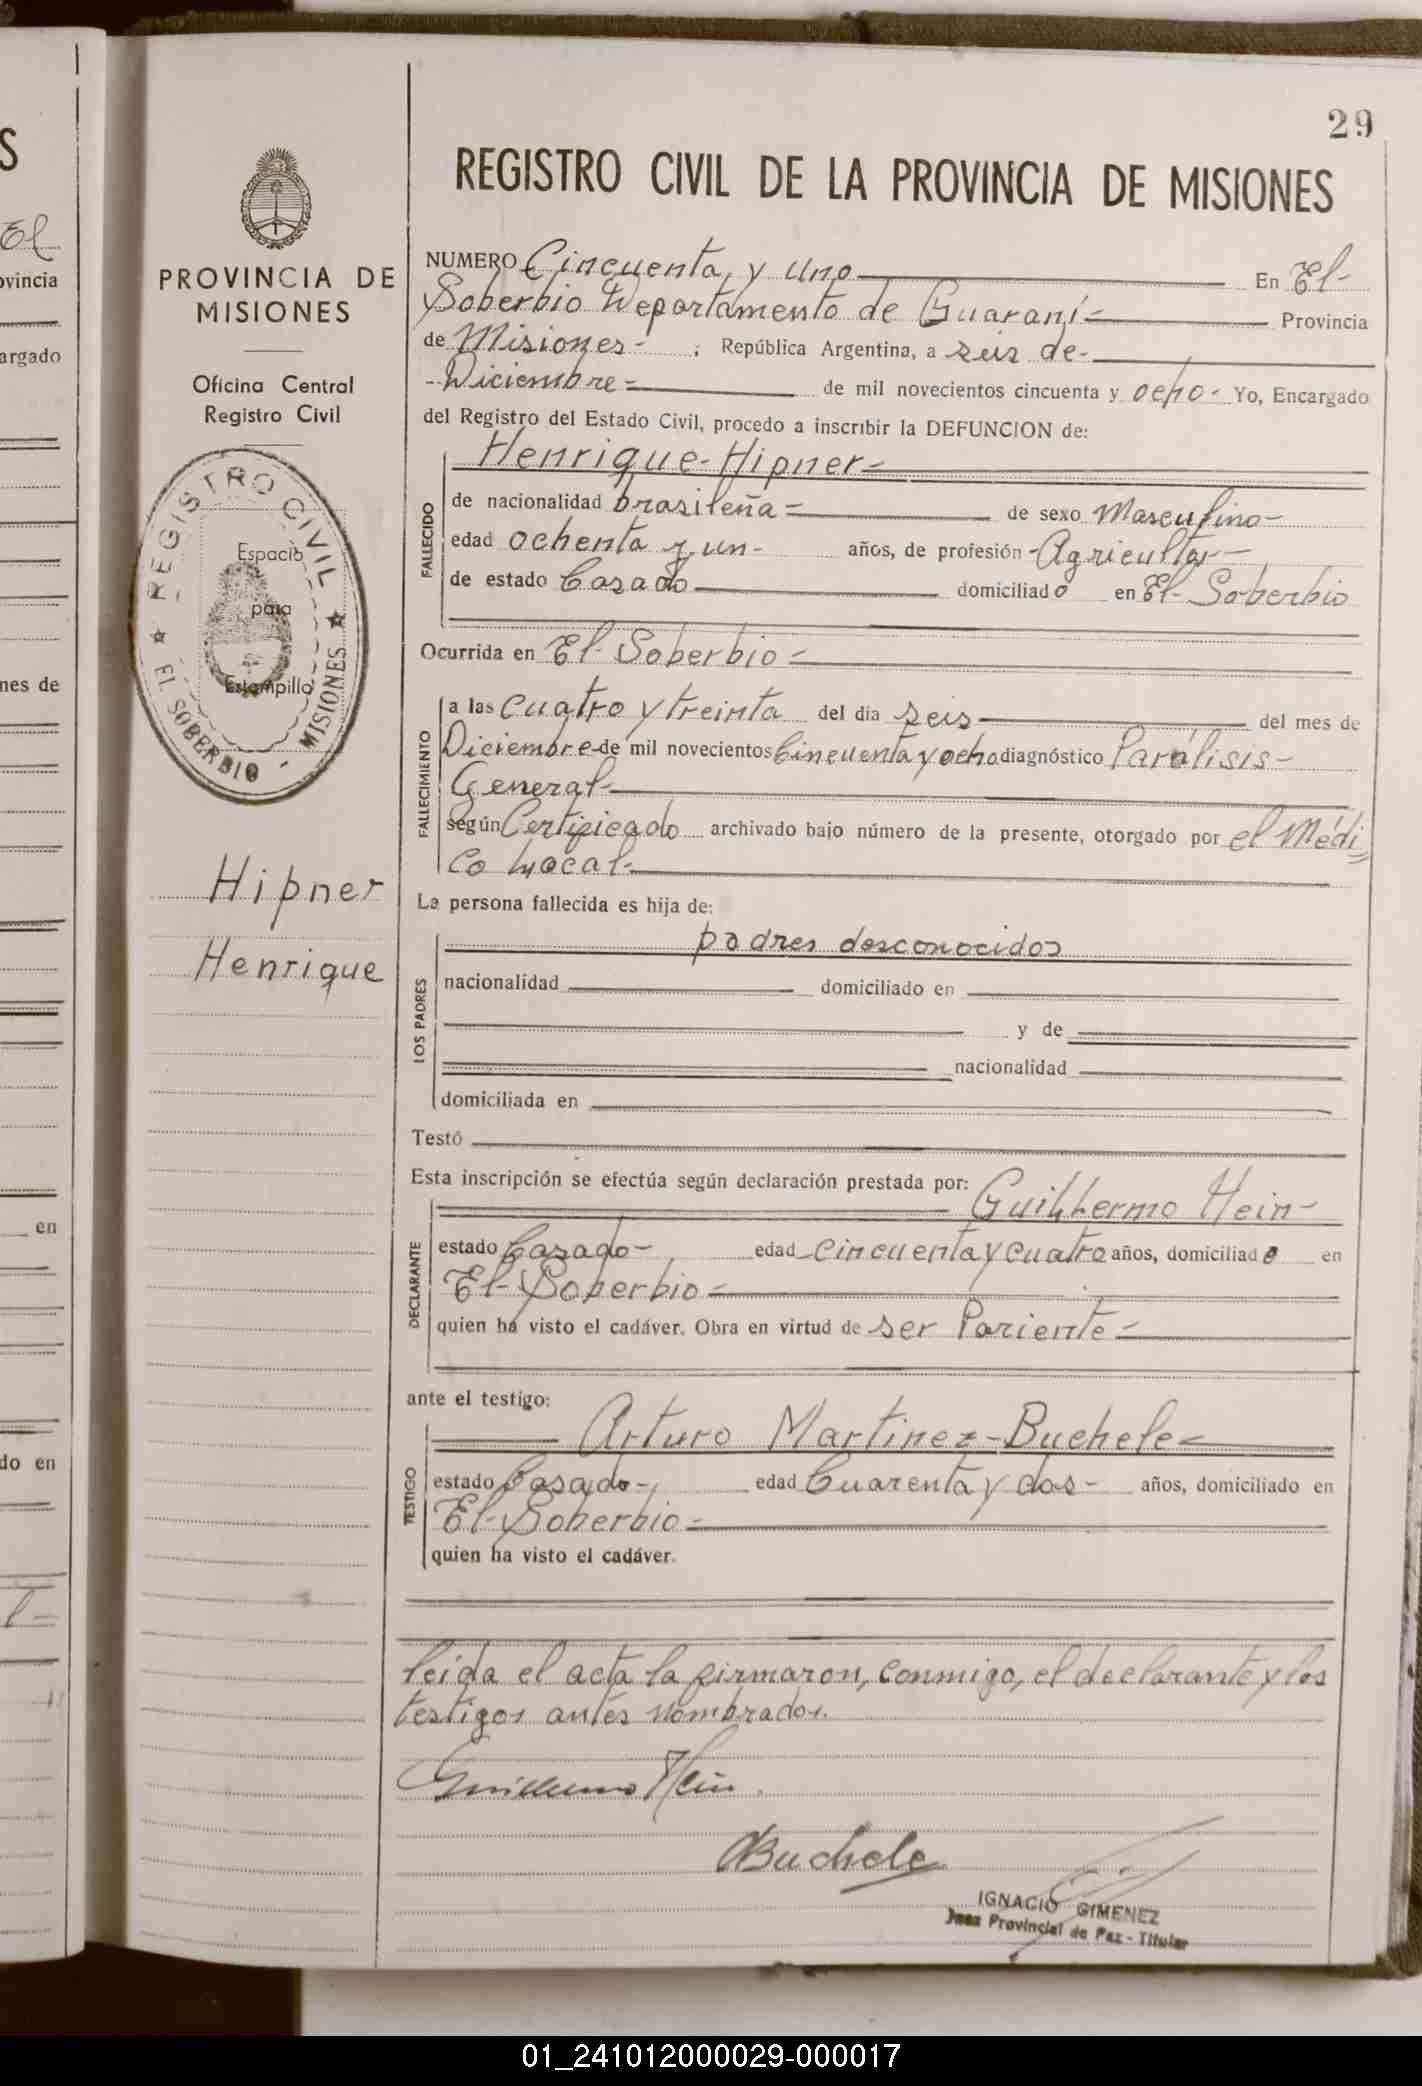 29
REGISTRO CIVIL DE LA PROVINCIA DE MISIONES
PROVINCIA DE
MISIONES
Oficina Central
Registro Civil
REGISTRO CIVIL
EL SOBERBIO - MISIONES
Espacio
para
Estampilla
Hipner
Henrique
NUMERO Cincuenta y uno En El
Soberbio Departamento de Guaraní Provincia
de Misiones- ; República Argentina, a seis de-
Diciembre de mil novecientos cincuenta y ocho- Yo, Encargado
del Registro del Estado Civil, procedo a inscribir la DEFUNCION de:
Henrique-Hipner-
FALLECIDO
de nacionalidad brasileña de sexo Masculino-
edad ochenta y un- años, de profesión -Agricultor-
de estado Casado domiciliado en El- Soberbio
Ocurrida en El-Soberbio-
FALLECIMIENTO
a las cuatro y treinta del día seis del mes de
Diciembre-de mil novecientos Cincuenta y ocho diagnóstico Parálisis-
General-
según Certificado archivado bajo número de la presente, otorgado por el Médi=
co Local-
La persona fallecida es hija de:
LOS PADRES
padres desconocidos
nacionalidad domiciliado en
y de
nacionalidad
domiciliada en
Testó
Esta inscripción se efectúa según declaración prestada por: Guilhermo Hein-
DECLARANTE
estado Casado- edad cincuenta y cuatro años, domiciliado en
El-Soberbio-
quien ha visto el cadáver. Obra en virtud de ser Pariente-
ante el testigo:
Arturo Martinez-Buchele-
TESTIGO
estado Casado-, edad Cuarenta y dos- años, domiciliado en
El-Soberbio-
quien ha visto el cadáver.
leída el acta la firmaron, conmigo, el declarante y los
testigos antes nombrados.
Guillermo Hein.
ABuchele
IGNACIO GIMENEZ
Juez Provincial de Paz - Titular
01_241012000029-000017